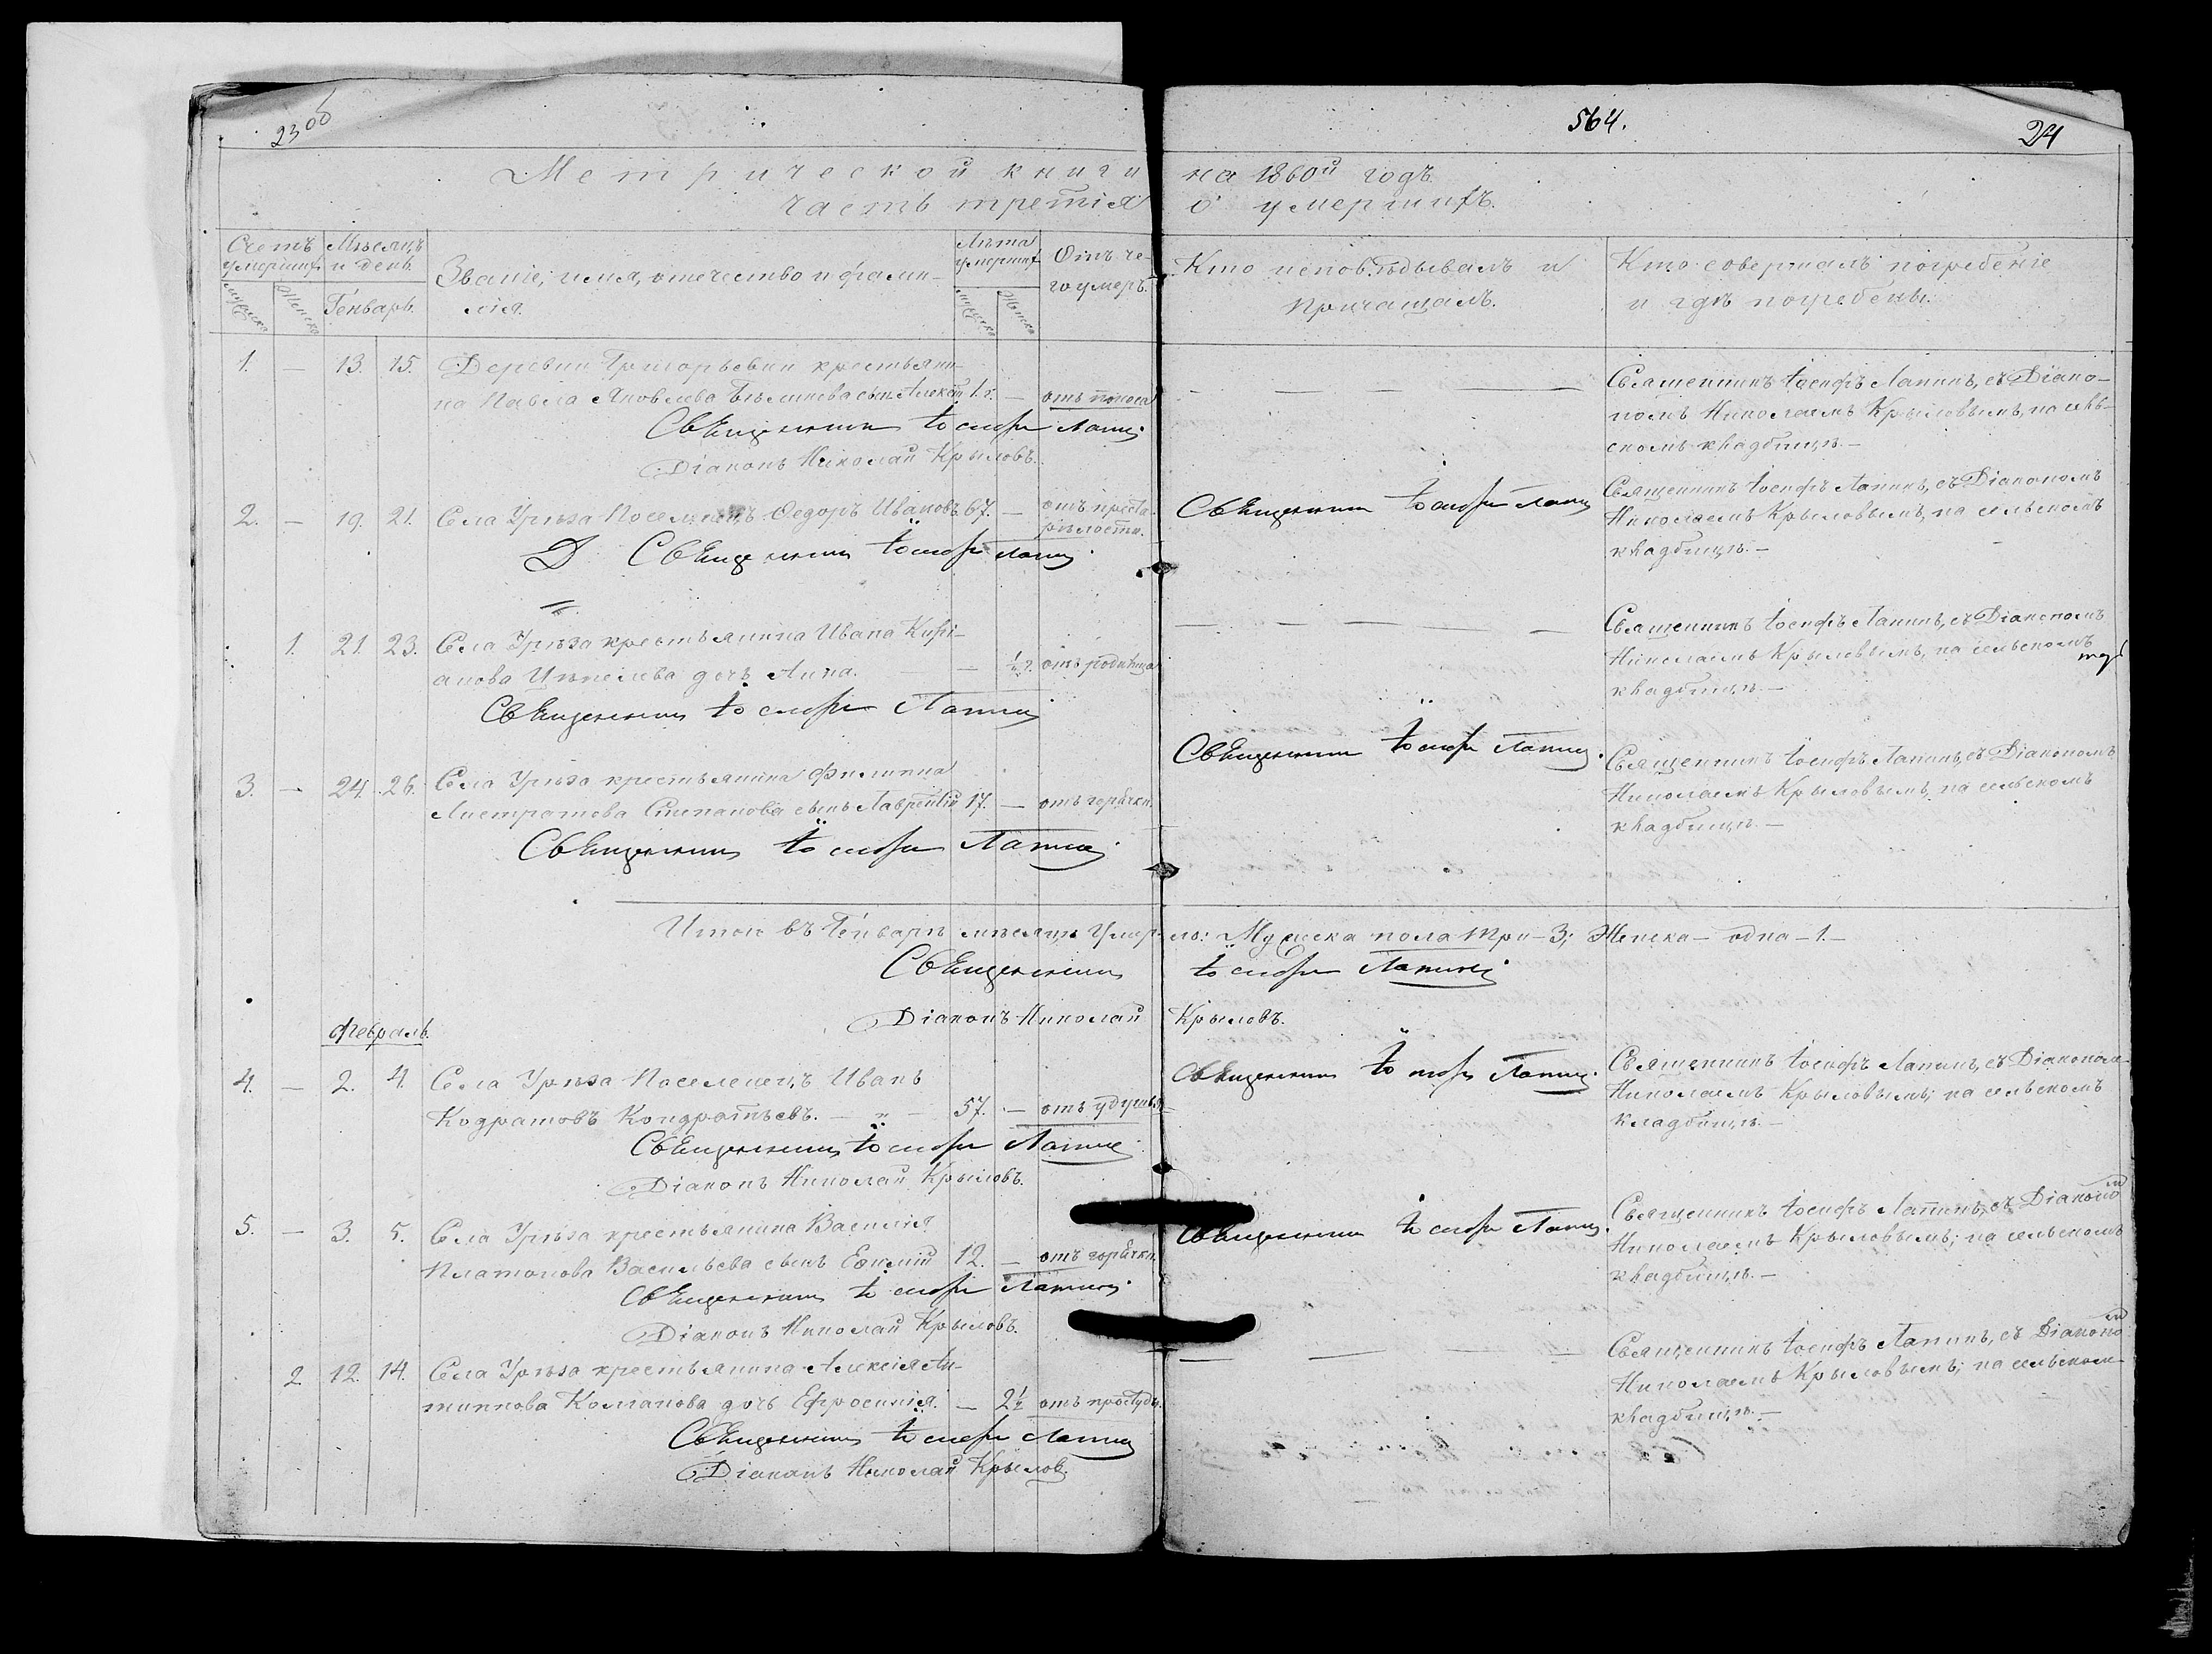 2306
564.
24
Метрической книги на 1860й годъ
часть третія о умершихъ.
Счетъ умершихъ
Мѣсяцъ и день.
Званіе, имя, отечество и фамилія.
Лѣта умершихъ
Отъ чего умеръ.
Кто исповѣдывалъ и
причащалъ.
Кто совершалъ погребеніе
и гдѣ погребены.
мужеска
женска
Генварь.
мужеска
женска
1. — 13. 15. Деревни Григорьевки крестьяни-
на Павла Яковлева сынъ 1.г. — отъ поноса
Священникъ Іосифъ Лапинъ
Діаконъ Николай Крыловъ.
Священникъ Іосифъ Лапинъ, съ Діако-
номъ Николаемъ Крыловымъ, на сель-
скомъ кладбищѣ.—
2. — 19. 21. Села Урѣза Поселенецъ Ѳедоръ Ивановъ. 67. — отъ преста-
рѣлости.
Д Священникъ Іосифъ Лапинъ
Священникъ Іосифъ Лапинъ
Священникъ Іосифъ Лапинъ, съ Діакономъ
Николаемъ Крыловымъ, на сельскомъ
кладбищѣ.—
1. 21. 23. Села Урѣза крестьянина Ивана Кирі-
анова дочь Анна. — отъ родимца
Священникъ Іосифъ Лапинъ
Священникъ Іосифъ Лапинъ, съ Діакономъ
Николаемъ Крыловымъ, на сельскомъ
кладбищѣ.—
3. — 24. 26. Села Урѣза крестьянина Филиппа
Степанова сынъ Лаврентій 17. — отъ горячки.
Священникъ Іосифъ Лапинъ
Священникъ Іосифъ Лапинъ.
Священникъ Іосифъ Лапинъ, съ Діакономъ
Николаемъ Крыловымъ, на сельскомъ
кладбищѣ.—
Итого въ Генварѣ мѣсяцѣ умерло: Мужеска пола три—3; Женска—одна—1.—
Священникъ Іосифъ Лапинъ
Діаконъ Николай Крыловъ.
Февраль.
4. — 2. 4. Села Урѣза Поселенецъ Иванъ
Кодратовъ Кондратьевъ. — „ — 57. — отъ удушья
Священникъ Іосифъ Лапинъ
Діаконъ Николай Крыловъ.
Священникъ Іосифъ Лапинъ.
Священникъ Іосифъ Лапинъ, съ Діакономъ
Николаемъ Крыловымъ; на сельскомъ
кладбищѣ.—
5. — 3. 5. Села Урѣза крестьянина Василія
Платонова Васильева сынъ Евѳимій 12. — отъ горячки.
Священникъ Іосифъ Лапинъ
Діаконъ Николай Крыловъ.
Священникъ Іосифъ Лапинъ.
Священникъ Іосифъ Лапинъ, съ Діакономъ
Николаемъ Крыловымъ; на сельскомъ
кладбищѣ.—
2. 12. 14. Села Урѣза крестьянина Алексія Ан-
типпова дочь Ефросинія. — 2½ отъ простуды.
Священникъ Іосифъ Лапинъ
Діаконъ Николай Крылов.
Священникъ Іосифъ Лапинъ, съ Діакономъ
Николаемъ Крыловымъ; на сельскомъ
кладбищѣ.—